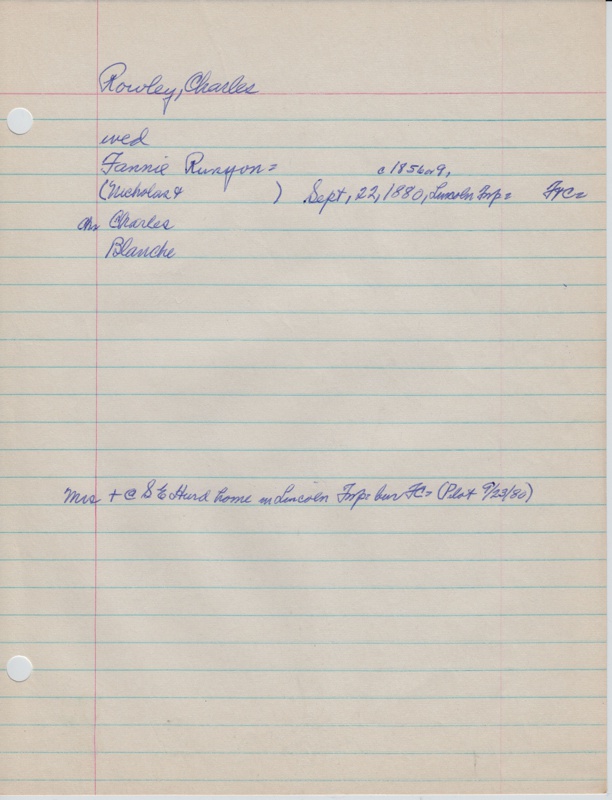 Rowley, Charles
wed
Fannie Runyon= c 1856 or 9,
(Nicholas & ) Sept, 22, 1880, Lincoln Twp= FC=
chn Charles
Blanche
Mrs + @ S E Hurd home in Lincoln Twp= bur FC= (Plat 9/23/80)